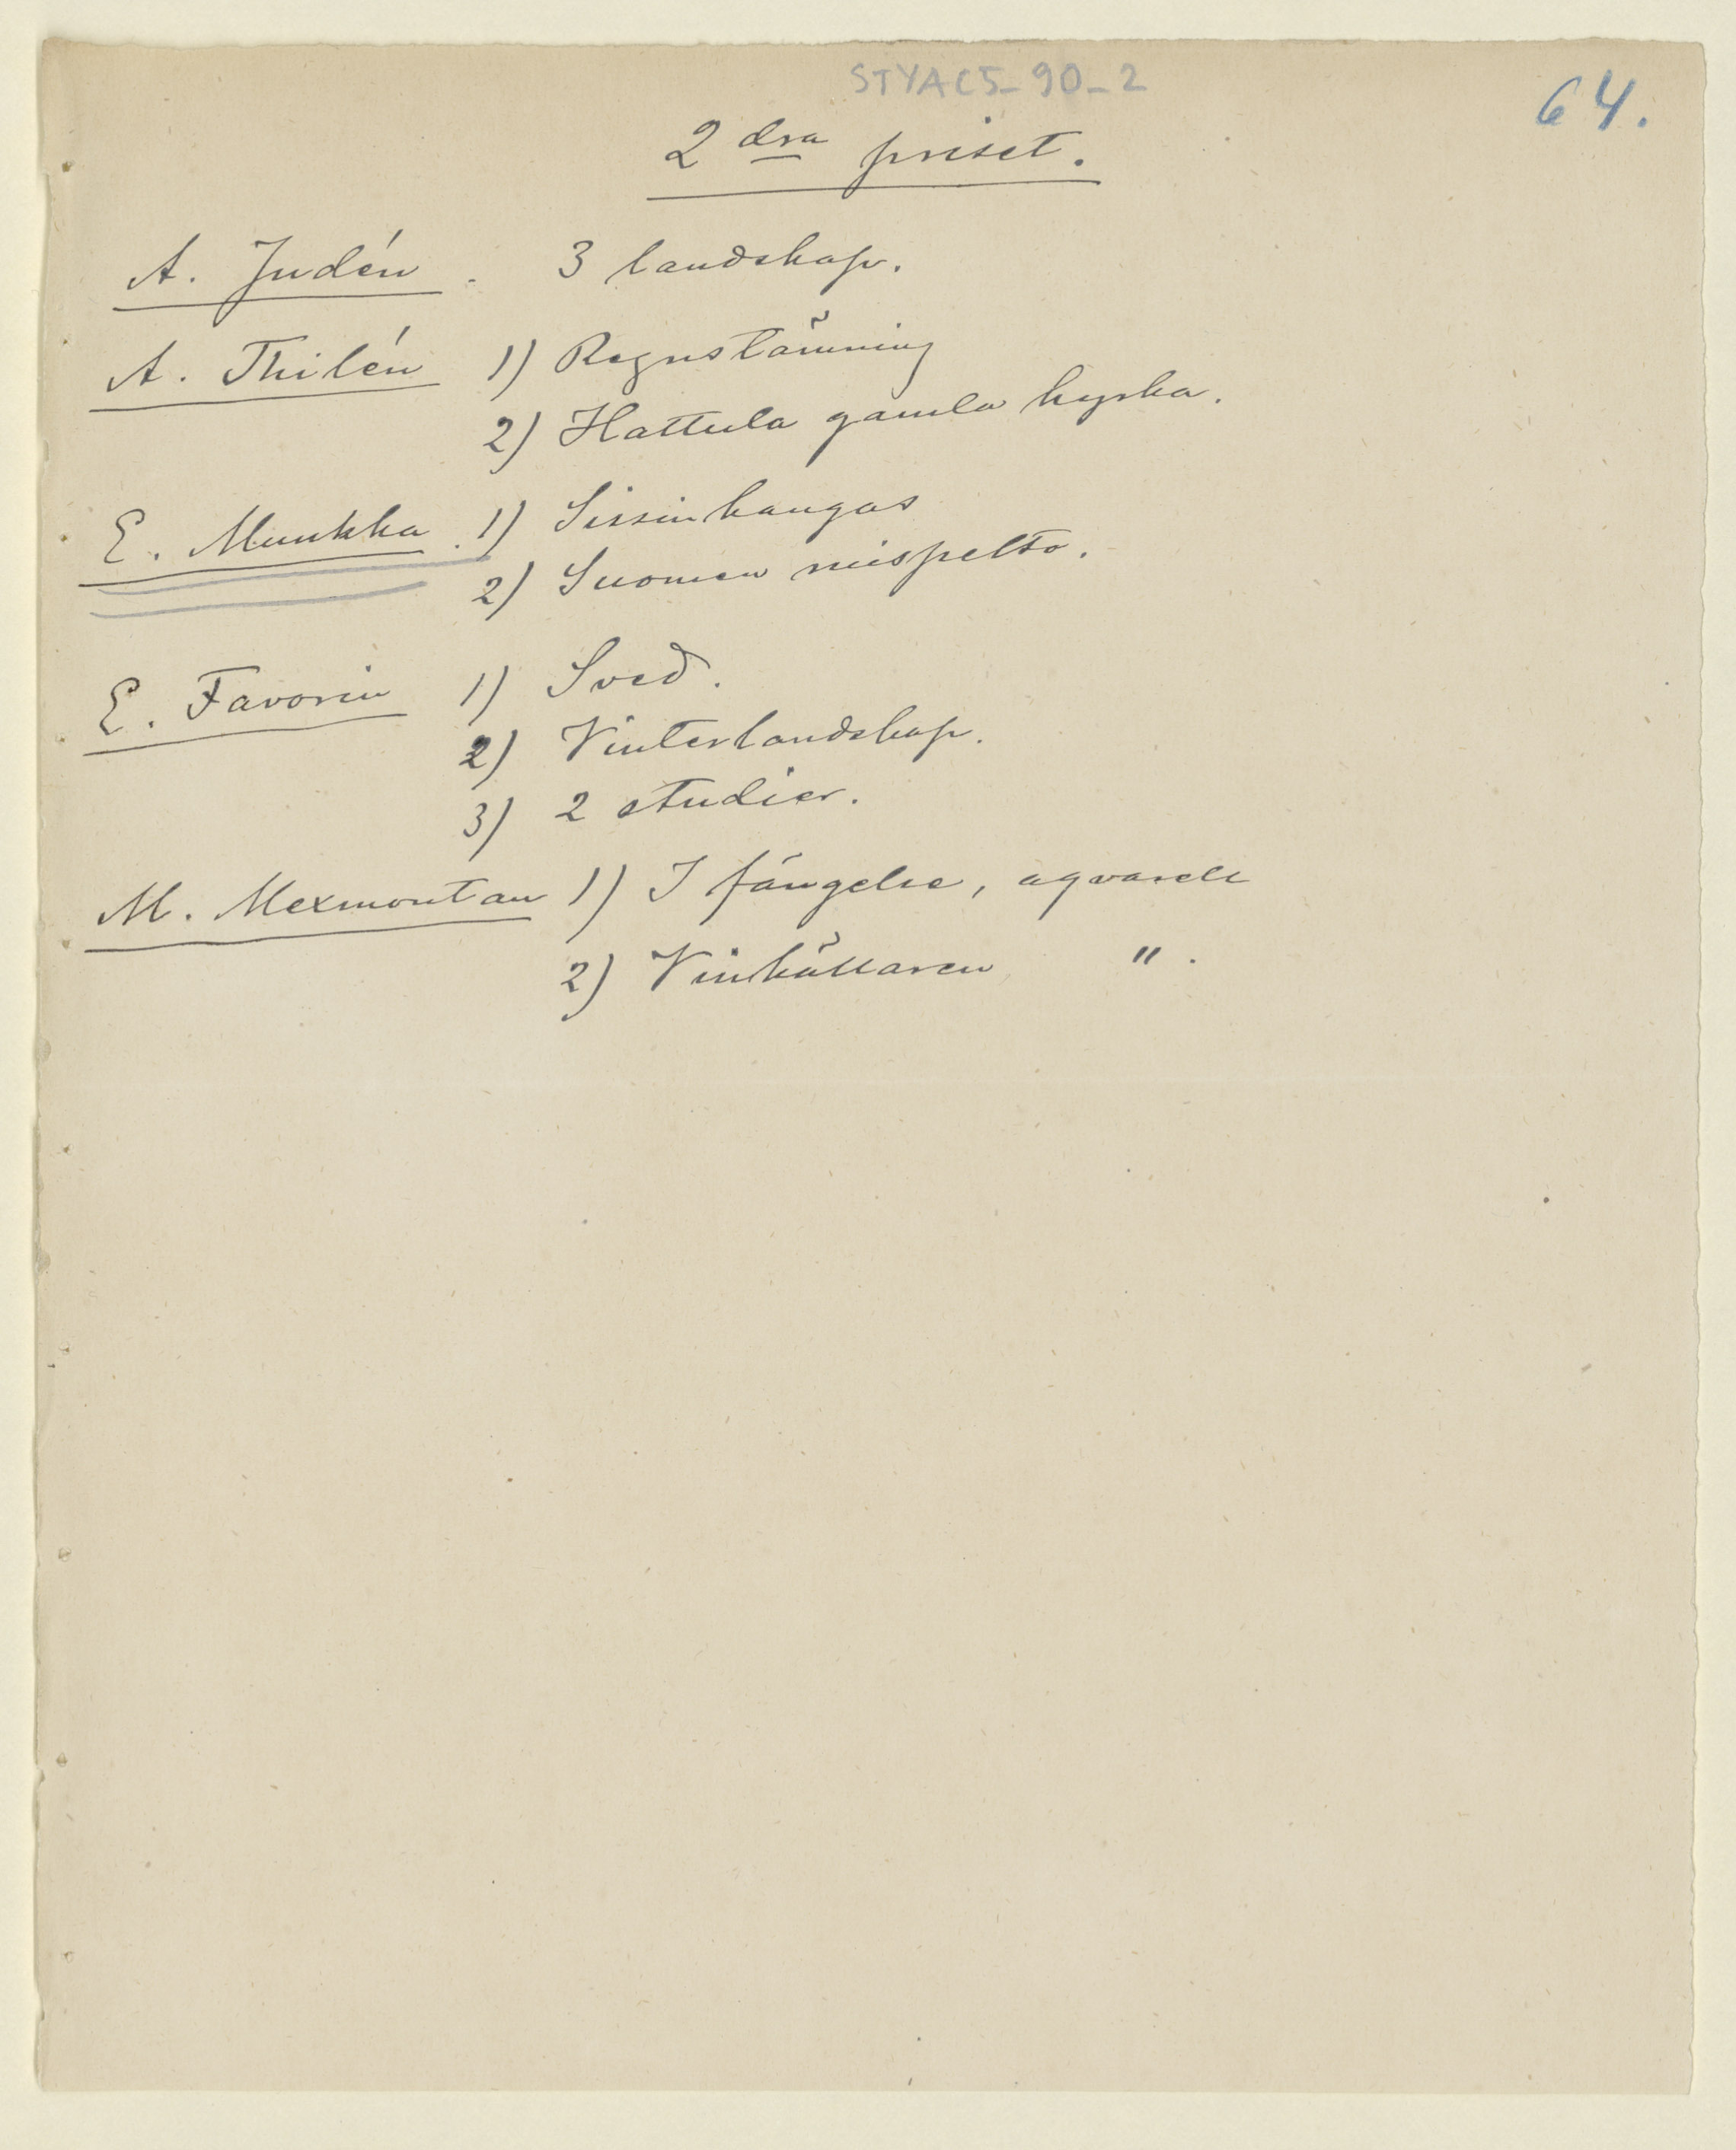 STYAC5_90_2
64.
2 dra priset.
A. Judén. 3 landskap.
A. Thilén 1) Regnstämning
2) Hattula gamla kyrka.
E. Muukka. 1) Sissinkangas
2) Suomen ruispelto.
E. Favorin 1) Sved.
2) Vinterlandskap.
3) 2 studier.
M. Mexmontan 1) I fängelse, aqvarell
2) Vinkällaren " .